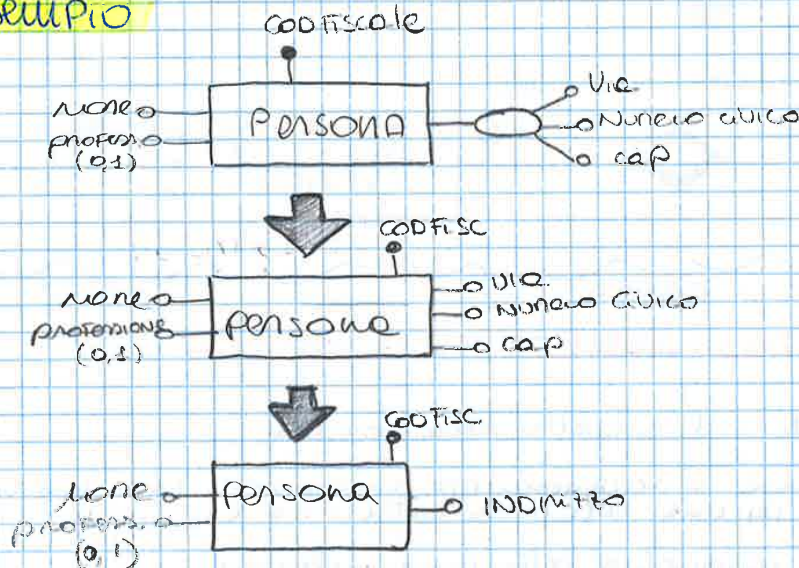 sempio
CODFiscale
nome
profess.
(0,1)
Persona
Via
Numero civico
cap
CODFisc
nome
professione
(0,1)
persona
via
numero civico
cap
CodFisc
nome
profess.
(0,1)
persona
INDIRIZZO